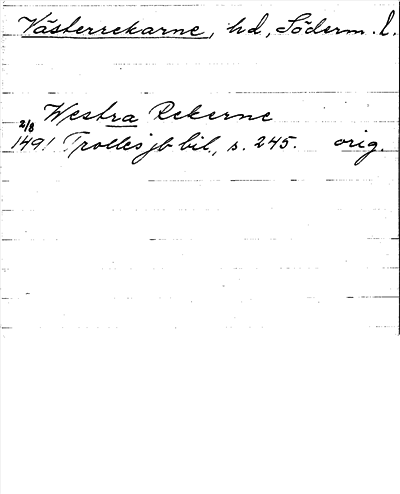 Västerrekarne, hd, Söderm. l.
Westra Rekerne
2/8
1491 Trolles jb bil., s. 245. orig.